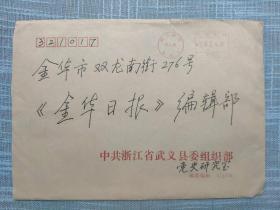 321017
金华市双龙南街276号
《金华日报》编辑部
中共浙江省武义县委组织部
党史研究室